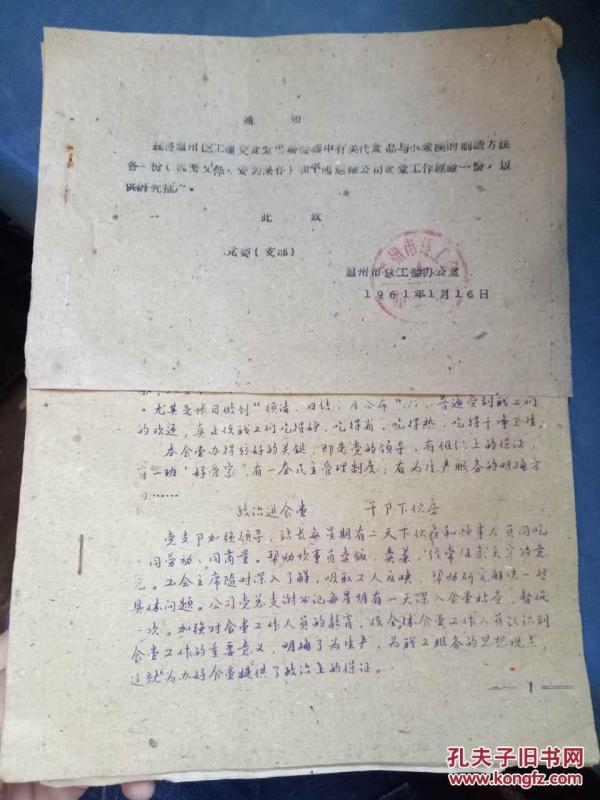 通 知
兹将温州区工矿交食堂现场会议中有关代食品与小球藻的制造方法
各一份(机密文件,妥为保存)和平阳运输公司食堂工作经验一份,以
供研究推广。
此 致
党委(支部)
温州市总工会办公室
1961年1月16日
。尤其是账目做到“日结、月公布”后,普遍受到职工们
的欢迎,真正使职工们吃得好、吃得省、吃得热、吃得干净卫生。
本食堂办得较好的关键,即是党的领导,有组织上的保证,
有一班“好管家”,有一套民主管理制度;有为生产服务的明确方
……
政治进食堂 干卩下伙房
党支卩加强领导,站长每星期有二天下伙房和炊事人员同吃
、同劳动、同商量。帮助炊事员卖饭、卖菜,经常征求大家的意
见。工会主席随时深入了解,吸取工人反映,帮助研究解决一些
具体问题。公司党总支谢书记每星期有一天深入食堂检查、督促
一次。加强对食堂工作人员的教育,使全体食堂工作人员认识到
食堂工作的重要意义,明确了为生产、为职工服务的思想观点,
这就为办好食堂提供了政治上的保证。
1
孔夫子旧书网
www.kongfz.com